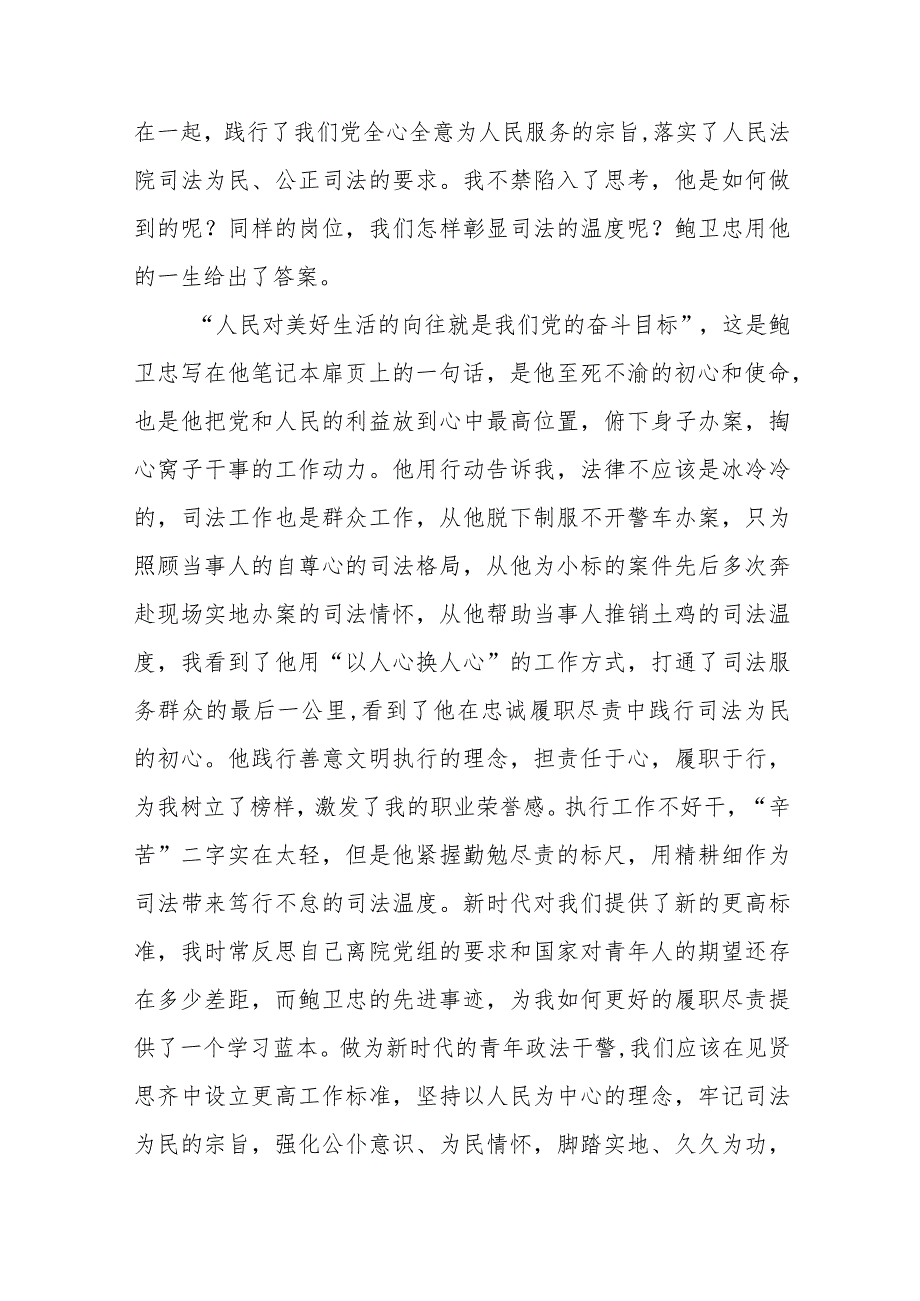 在一起，践行了我们党全心全意为人民服务的宗旨,落实了人民法
院司法为民、公正司法的要求。我不禁陷入了思考，他是如何做
到的呢？同样的岗位，我们怎样彰显司法的温度呢？鲍卫忠用他
的一生给出了答案。
“人民对美好生活的向往就是我们党的奋斗目标”，这是鲍
卫忠写在他笔记本扉页上的一句话，是他至死不渝的初心和使命，
也是他把党和人民的利益放到心中最高位置，俯下身子办案，掏
心窝子干事的工作动力。他用行动告诉我，法律不应该是冰冷冷
的，司法工作也是群众工作，从他脱下制服不开警车办案，只为
照顾当事人的自尊心的司法格局，从他为小标的案件先后多次奔
赴现场实地办案的司法情怀，从他帮助当事人推销土鸡的司法温
度，我看到了他用“以人心换人心”的工作方式，打通了司法服
务群众的最后一公里,看到了他在忠诚履职尽责中践行司法为民
的初心。他践行善意文明执行的理念，担责任于心，履职于行，
为我树立了榜样，激发了我的职业荣誉感。执行工作不好干，“辛
苦”二字实在太轻，但是他紧握勤勉尽责的标尺，用精耕细作为
司法带来笃行不怠的司法温度。新时代对我们提供了新的更高标
准，我时常反思自己离院党组的要求和国家对青年人的期望还存
在多少差距，而鲍卫忠的先进事迹，为我如何更好的履职尽责提
供了一个学习蓝本。做为新时代的青年政法干警,我们应该在见贤
思齐中设立更高工作标准，坚持以人民为中心的理念，牢记司法
为民的宗旨，强化公仆意识、为民情怀，脚踏实地、久久为功，